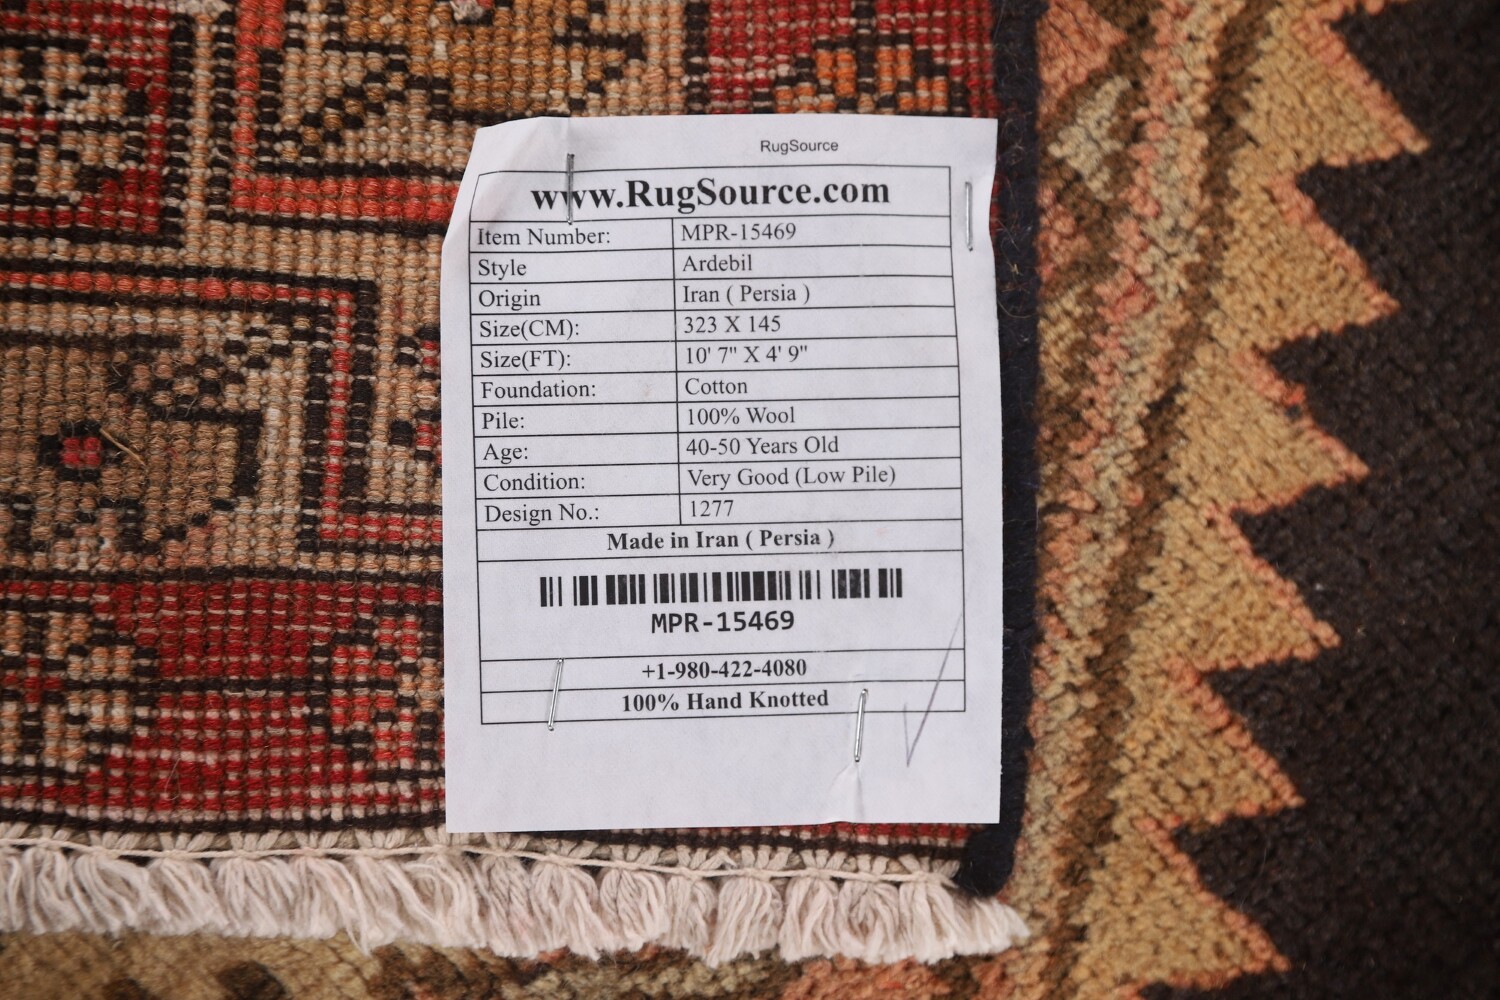 RugSource
www.RugSource.com
Item Number: MPR-15469
Style Ardebil
Origin Iran ( Persia )
Size(CM): 323 X 145
Size(FT): 10' 7" X 4' 9"
Foundation: Cotton
Pile: 100% Wool
Age: 40-50 Years Old
Condition: Very Good (Low Pile)
Design No.: 1277
Made in Iran ( Persia )
MPR-15469
+1-980-422-4080
100% Hand Knotted